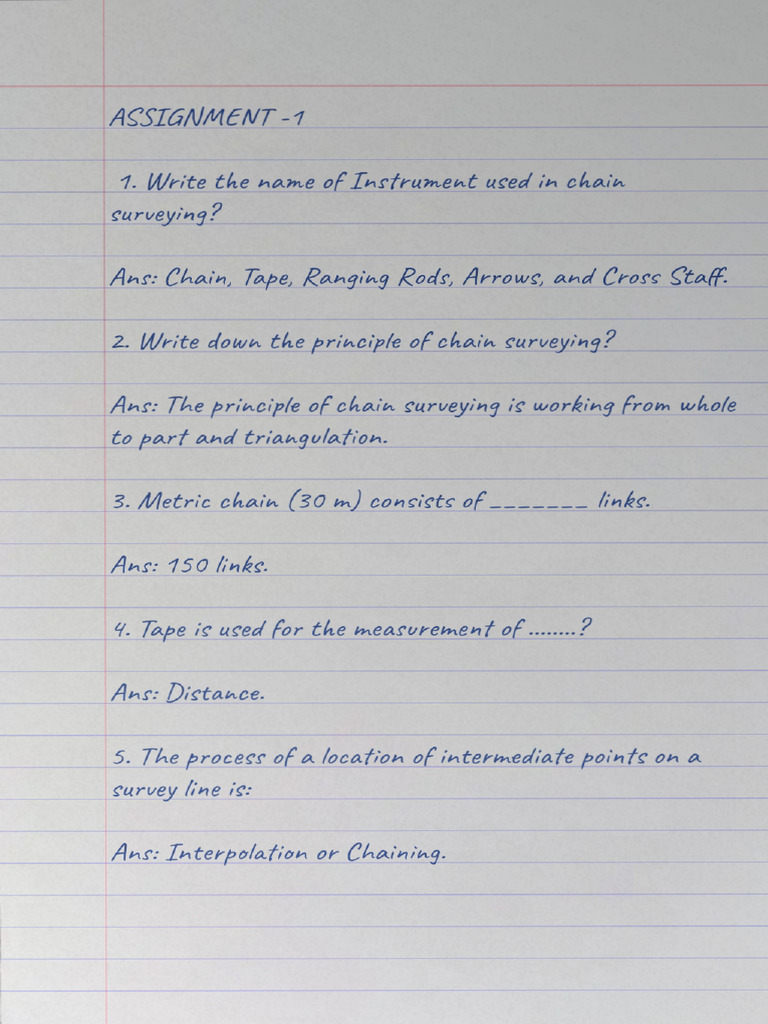 ASSIGNMENT -1
1. Write the name of Instrument used in chain
surveying?
Ans: Chain, Tape, Ranging Rods, Arrows, and Cross Staff.
2. Write down the principle of chain surveying?
Ans: The principle of chain surveying is working from whole
to part and triangulation.
3. Metric chain (30 m) consists of _______ links.
Ans: 150 links.
4. Tape is used for the measurement of ........?
Ans: Distance.
5. The process of a location of intermediate points on a
survey line is:
Ans: Interpolation or Chaining.